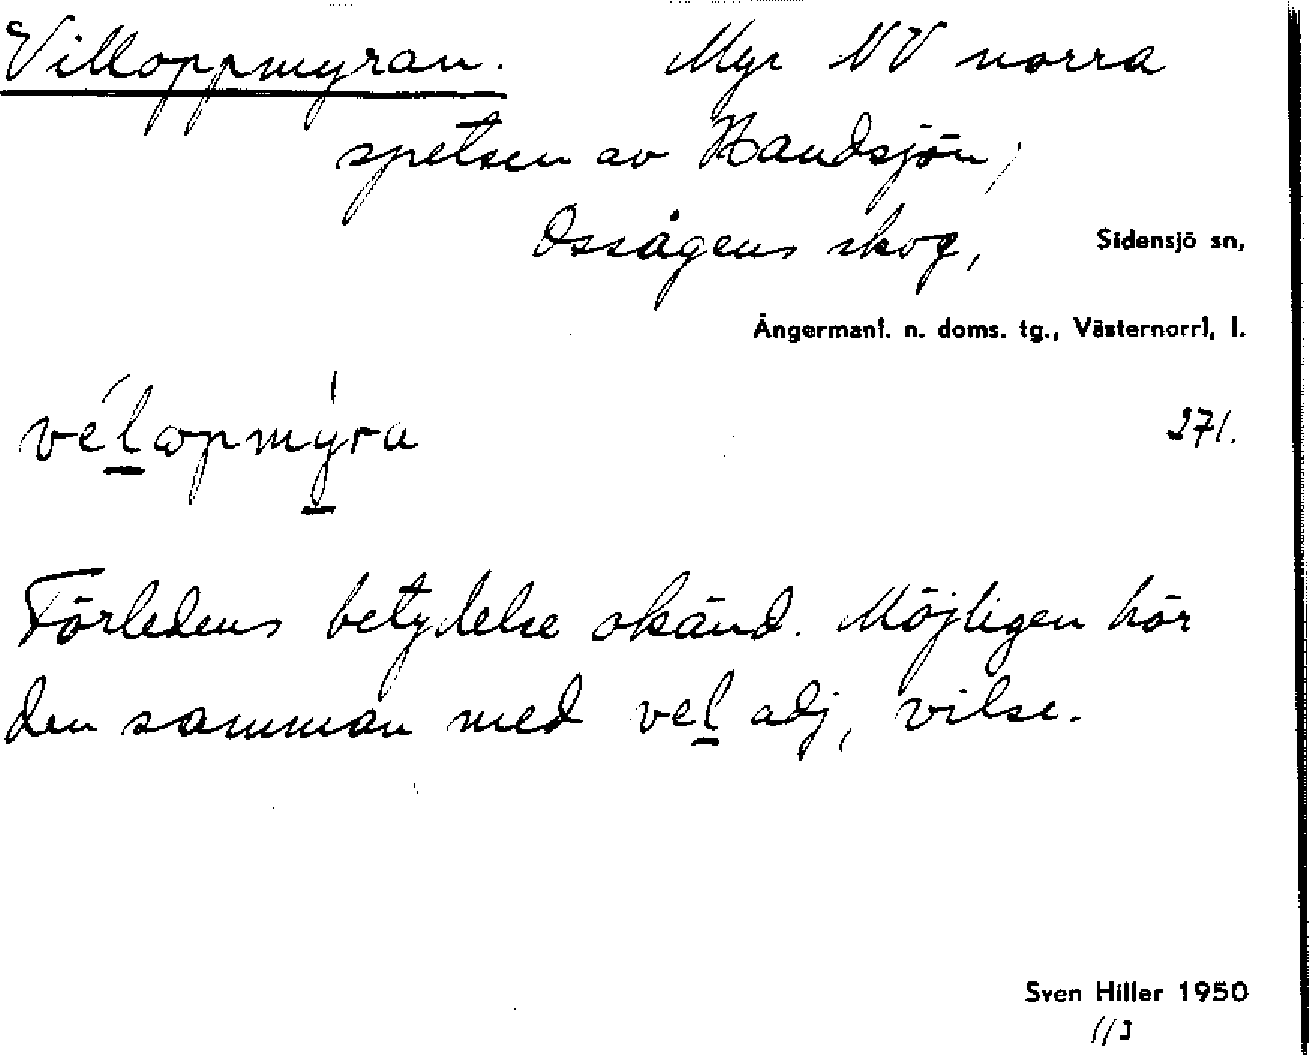 Villoppmyran. Myr NV norra
spetsen av Handsjön,
Ossågens skog, Sidensjö sn,
Ångermanl. n. doms. tg., Västernorrl. l.
vélopmýra 271.
Förledens betydelse okänd. Möjligen hör
den samman med vel adj, vilse.
Sven Hiller 1950